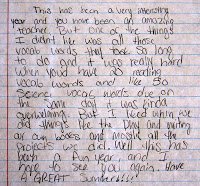 This has been a very amazing
year and you have been an amazing
teacher. But one of the things
I didn't like was all those
vocab words that took so long
to do and it was really hard
when you'd have 25 reading
vocab words and like 30
science vocab words due on
the same day it was kinda
overwhelming. But I liked when we
did things like the Day and
on our and mostly all the
projects we did. Well this has
been a fun year, and I
hope to see you again. Have
a GREAT Summer!!!!